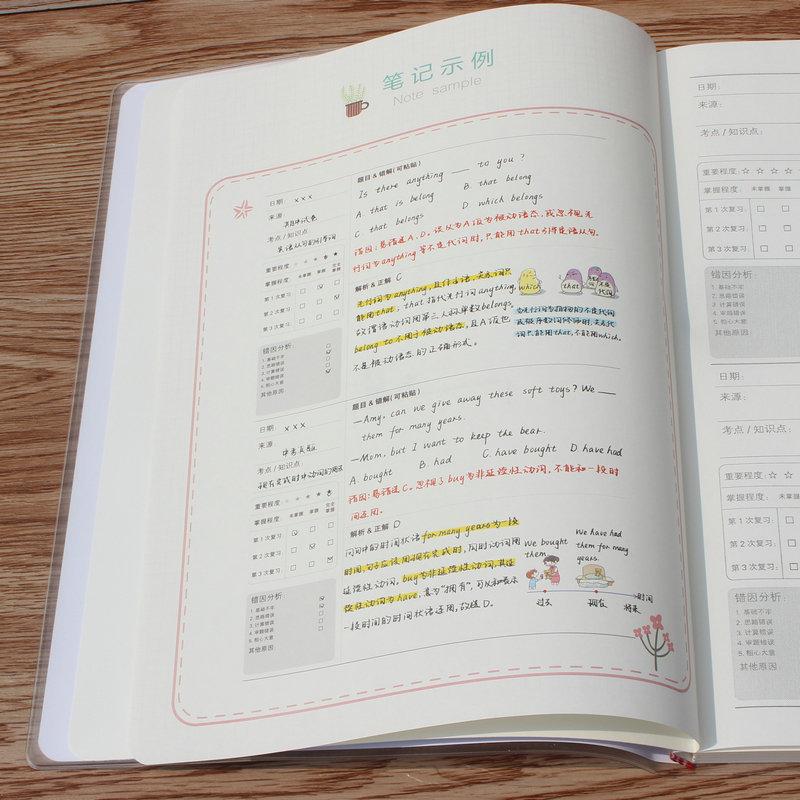 笔记示例
Note sample
日期: × × ×
来源:
期中试卷
考点 / 知识点:
英语从句的引导词
重要程度: ☆ ☆ ★ ★ ★
掌握程度: 未掌握 掌握 完全掌握
第 1 次复习:
第 2 次复习:
第 3 次复习:
错因分析:
1. 基础不牢
2. 思路错误
3. 计算错误
4. 审题错误
5. 粗心大意
其他原因:
题目 & 错解(可粘贴)
Is there anything ___ to you ?
A. that is belong B. that belong
C that belongs D. which belongs
错因: 易错选A、D。误以为A项为被动语态, 或忽视先
行词为anything等不定代词时, 只能用that引导定语从句。
解析 & 正解 C
先行词为anything, 且作主语, 关系词只
能用that; that指代先行词anything,
故谓语动词用第三人称单数belongs,
belong to 不用于被动语态, 且A项也
不是被动语态的正确形式。
which
that
不定代词
当先行词为指物的不定代词
或被序数词修饰时, 关系代
词只能用that, 不能用which。
日期: × × ×
来源:
中考真题
考点 / 知识点:
现在完成时中动词的用法
重要程度: ☆ ☆ ★ ★ ★
掌握程度: 未掌握 掌握 完全掌握
第 1 次复习:
第 2 次复习:
第 3 次复习:
错因分析:
1. 基础不牢
2. 思路错误
3. 计算错误
4. 审题错误
5. 粗心大意
其他原因:
题目 & 错解(可粘贴)
—Amy, can we give away these soft toys? We ___
them for many years.
—Mom, but I want to keep the bear.
A. bought B. had C. have bought D. have had
错因: 易错选 C。忽视了buy为非延续性动词, 不能和一段时
间连用。
解析 & 正解 D
问句中的时间状语for many years为一段
时间, 句子应该用现在完成时, 同时动词用
延续性动词, buy为非延续性动词, 其延
续性动词为have, 意为"拥有", 可以和表示
一段时间的时间状语连用, 故选 D。
We bought
them
We have had
them for many
years.
过去 现在 将来
时间
日期:
来源:
考点 / 知识点:
重要程度: ☆ ☆ ☆
掌握程度: 未掌握 掌握
第 1 次复习:
第 2 次复习:
第 3 次复习:
错因分析:
1. 基础不牢
2. 思路错误
3. 计算错误
4. 审题错误
5. 粗心大意
其他原因:
日期:
来源:
考点 / 知识点:
重要程度: ☆ ☆
掌握程度: 未掌握
第 1 次复习:
第 2 次复习:
第 3 次复习:
错因分析:
1. 基础不牢
2. 思路错误
3. 计算错误
4. 审题错误
5. 粗心大意
其他原因: